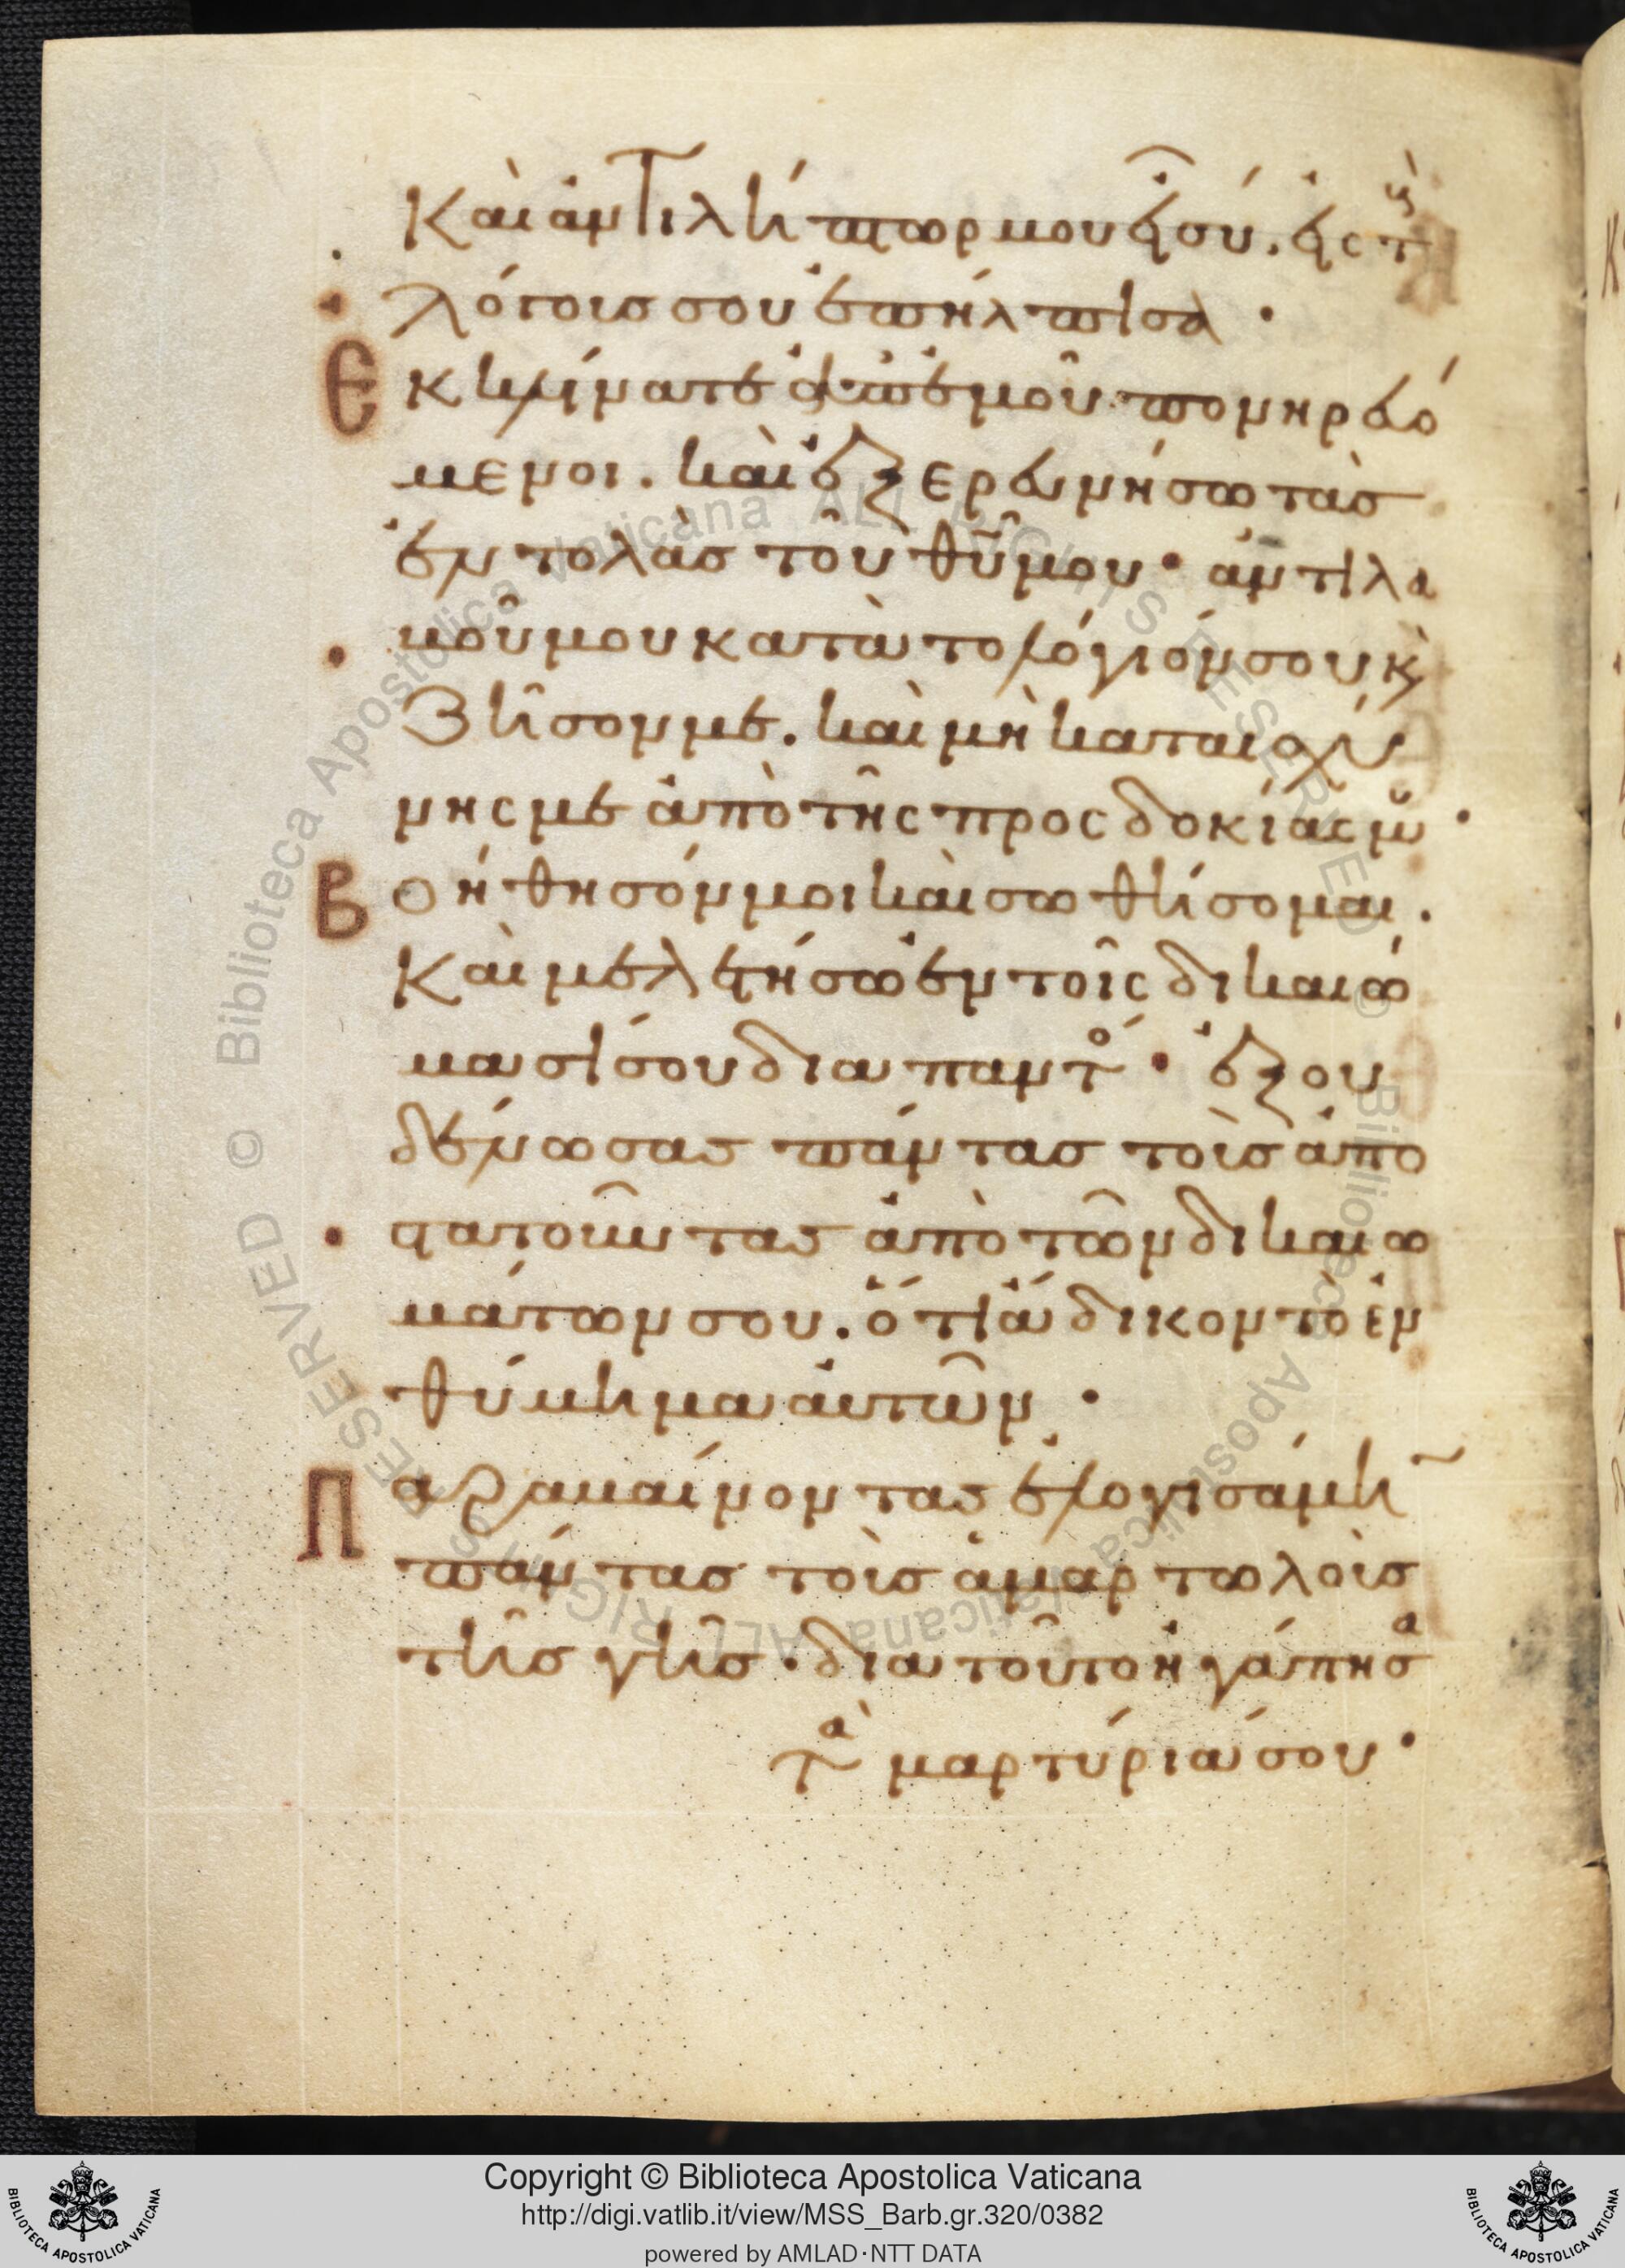 Καὶ ἀντιλήπτωρ μου εἶ σύ. εἰς τοὺς
λόγους σου ἐπήλπισα ·
Ἐκκλίνατε ἀπ᾽ ἐμοῦ πονηρευό
μενοι. καὶ ἐξερευνήσω τὰς
ἐντολὰς τοῦ θῦ μου · ἀντιλα
βοῦ μου κατὰ τὸ λόγιόν σου κ̀
ζῆσόν με. καὶ μὴ καταισχύ
νης με ἀπὸ τῆς προσδοκίας μου ·
Βοήθησόν μοι καὶ σωθήσομαι.
Καὶ μελετήσω ἐν τοῖς δικαιώ
μασί σου διαπαντός · ἐξου
δένωσας πάντας τοὺς ἀπο
στατοῦντας ἀπὸ τῶν δικαιω
μάτων σου. ὅτι ἄδικον τὸ ἐν
θύμημα αὐτῶν ·
Παραβαίνοντας ἐλογισάμην
πάντας τοὺς ἁμαρτωλοὺς
τῆς γῆς · διατοῦτο ἠγάπησα
τὰ μαρτύριά σου ·
Copyright © Biblioteca Apostolica Vaticana
http://digi.vatlib.it/view/MSS_Barb.gr.320/0382
powered by AMLAD·NTT DATA
BIBLIOTECA APOSTOLICA VATICANA
BIBLIOTECA APOSTOLICA VATICANA
© Biblioteca Apostolica Vaticana ALL RIGHTS RESERVED
© Biblioteca Apostolica Vaticana ALL RIGHTS RESERVED